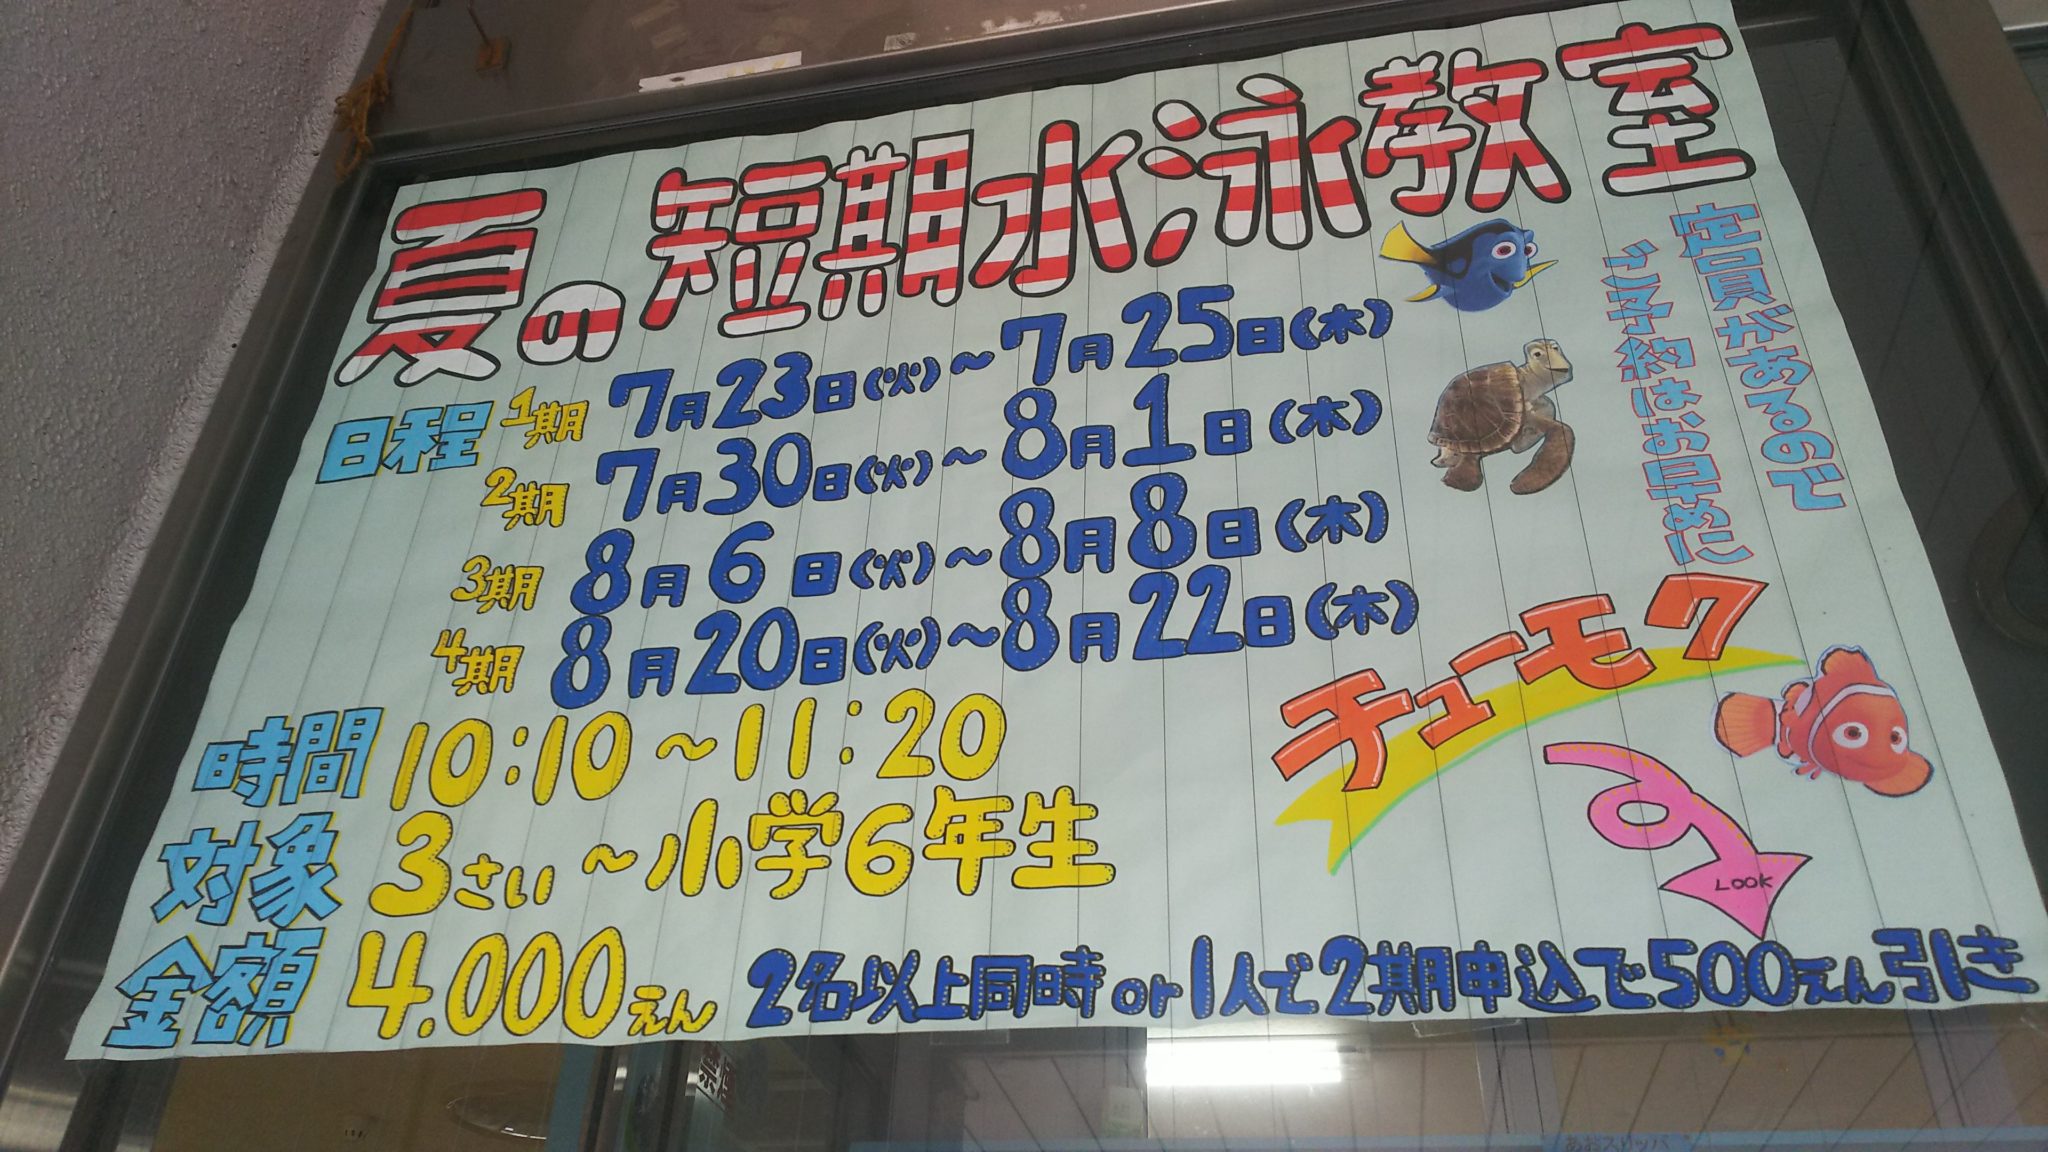 夏の短期水泳教室
定員があるので
ご予約はお早めに
日程 1期 7月23日(火)~7月25日(木)
2期 7月30日(火)~8月1日(木)
3期 8月6日(火)~8月8日(木)
4期 8月20日(火)~8月22日(木)
時間 10:10~11:20
対象 3さい~小学6年生
チューモク
LOOK
金額 4.000えん 2名以上同時or1人で2期申込で500えん引き